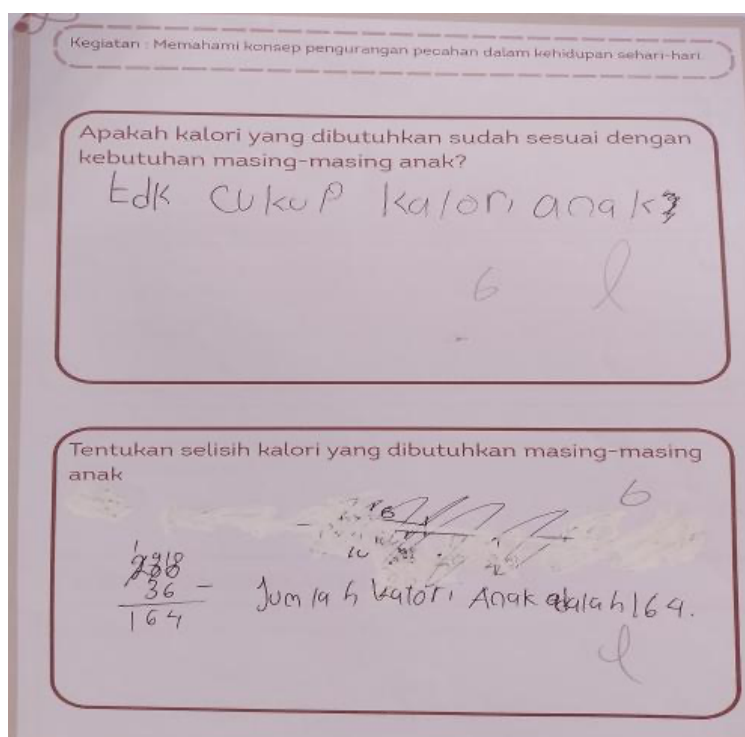 Kegiatan : Memahami konsep pengurangan pecahan dalam kehidupan sehari-hari.
Apakah kalori yang dibutuhkan sudah sesuai dengan
kebutuhan masing-masing anak?
tdk cukup kalori anak
6
Tentukan selisih kalori yang dibutuhkan masing-masing
anak
6
36 -
164
Jumlah kalori Anak adalah 164.